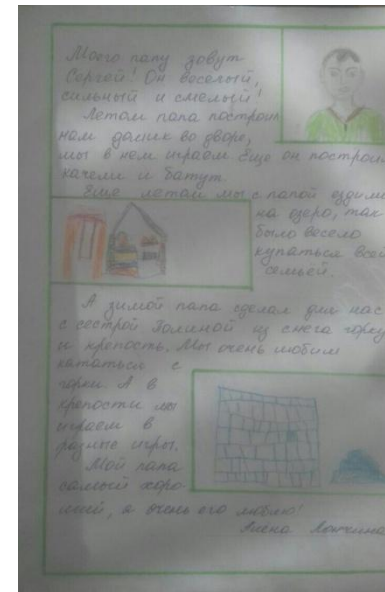 Моего папу зовут
Сергей! Он веселый,
сильный и смелый!
Летом папа построил
нам домик во дворе,
мы в нем играем. Еще он построил
качели и батут.
Еще летом мы с папой ездили
на озеро, так
было весело
купаться всей
семьей.
А зимой папа сделал для нас
с сестрой Полиной из снега горку
и крепость. Мы очень любим
кататься с
горки. А в
крепости мы
играем в
разные игры.
Мой папа
самый хоро-
ший, я очень его люблю!
Алена